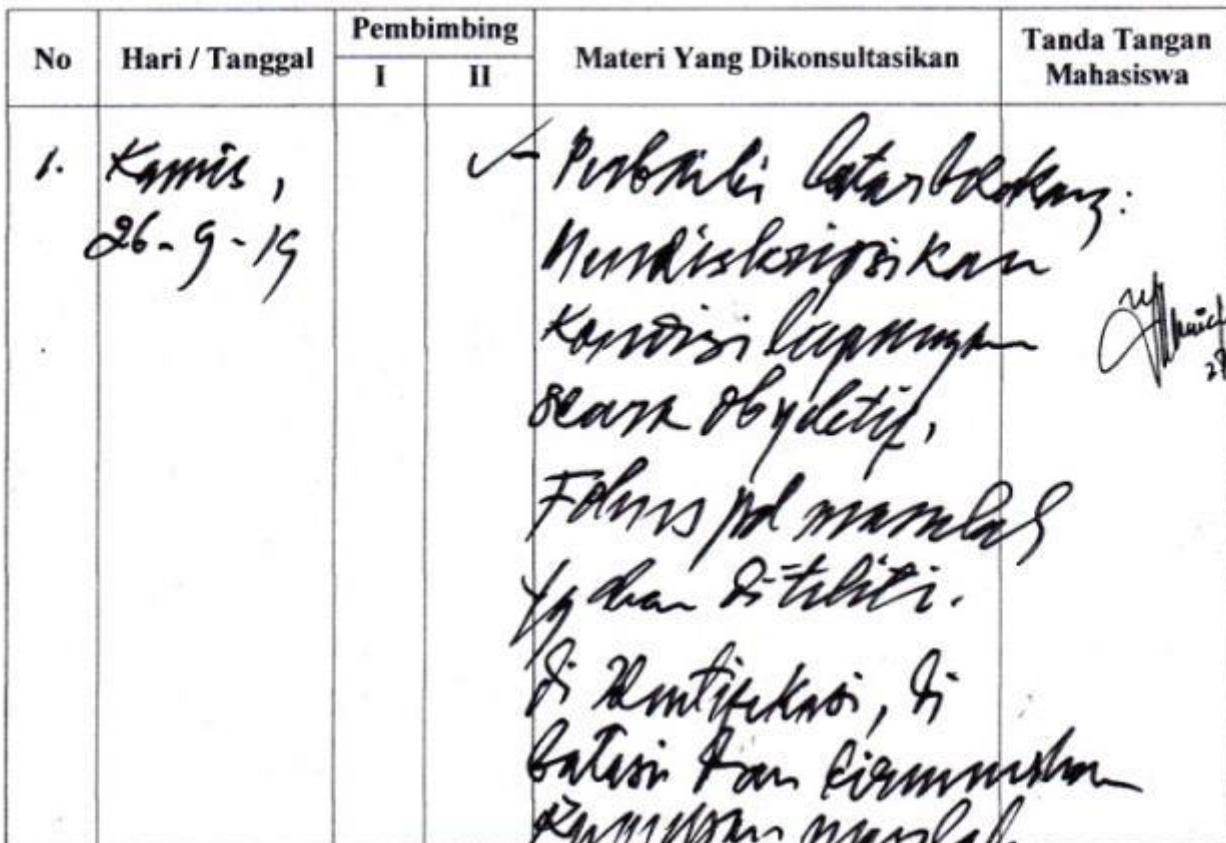 No Hari / Tanggal Pembimbing Materi Yang Dikonsultasikan Tanda Tangan Mahasiswa
I II
1. Kamis, Perbaiki latar belakang:
26-9-19 Mendiskripsikan
Kondisi lapangan
secara obyektif,
Fokus pd masalah
yg akan diteliti.
di identifikasi, di
batasi dan dirumuskan
masalah